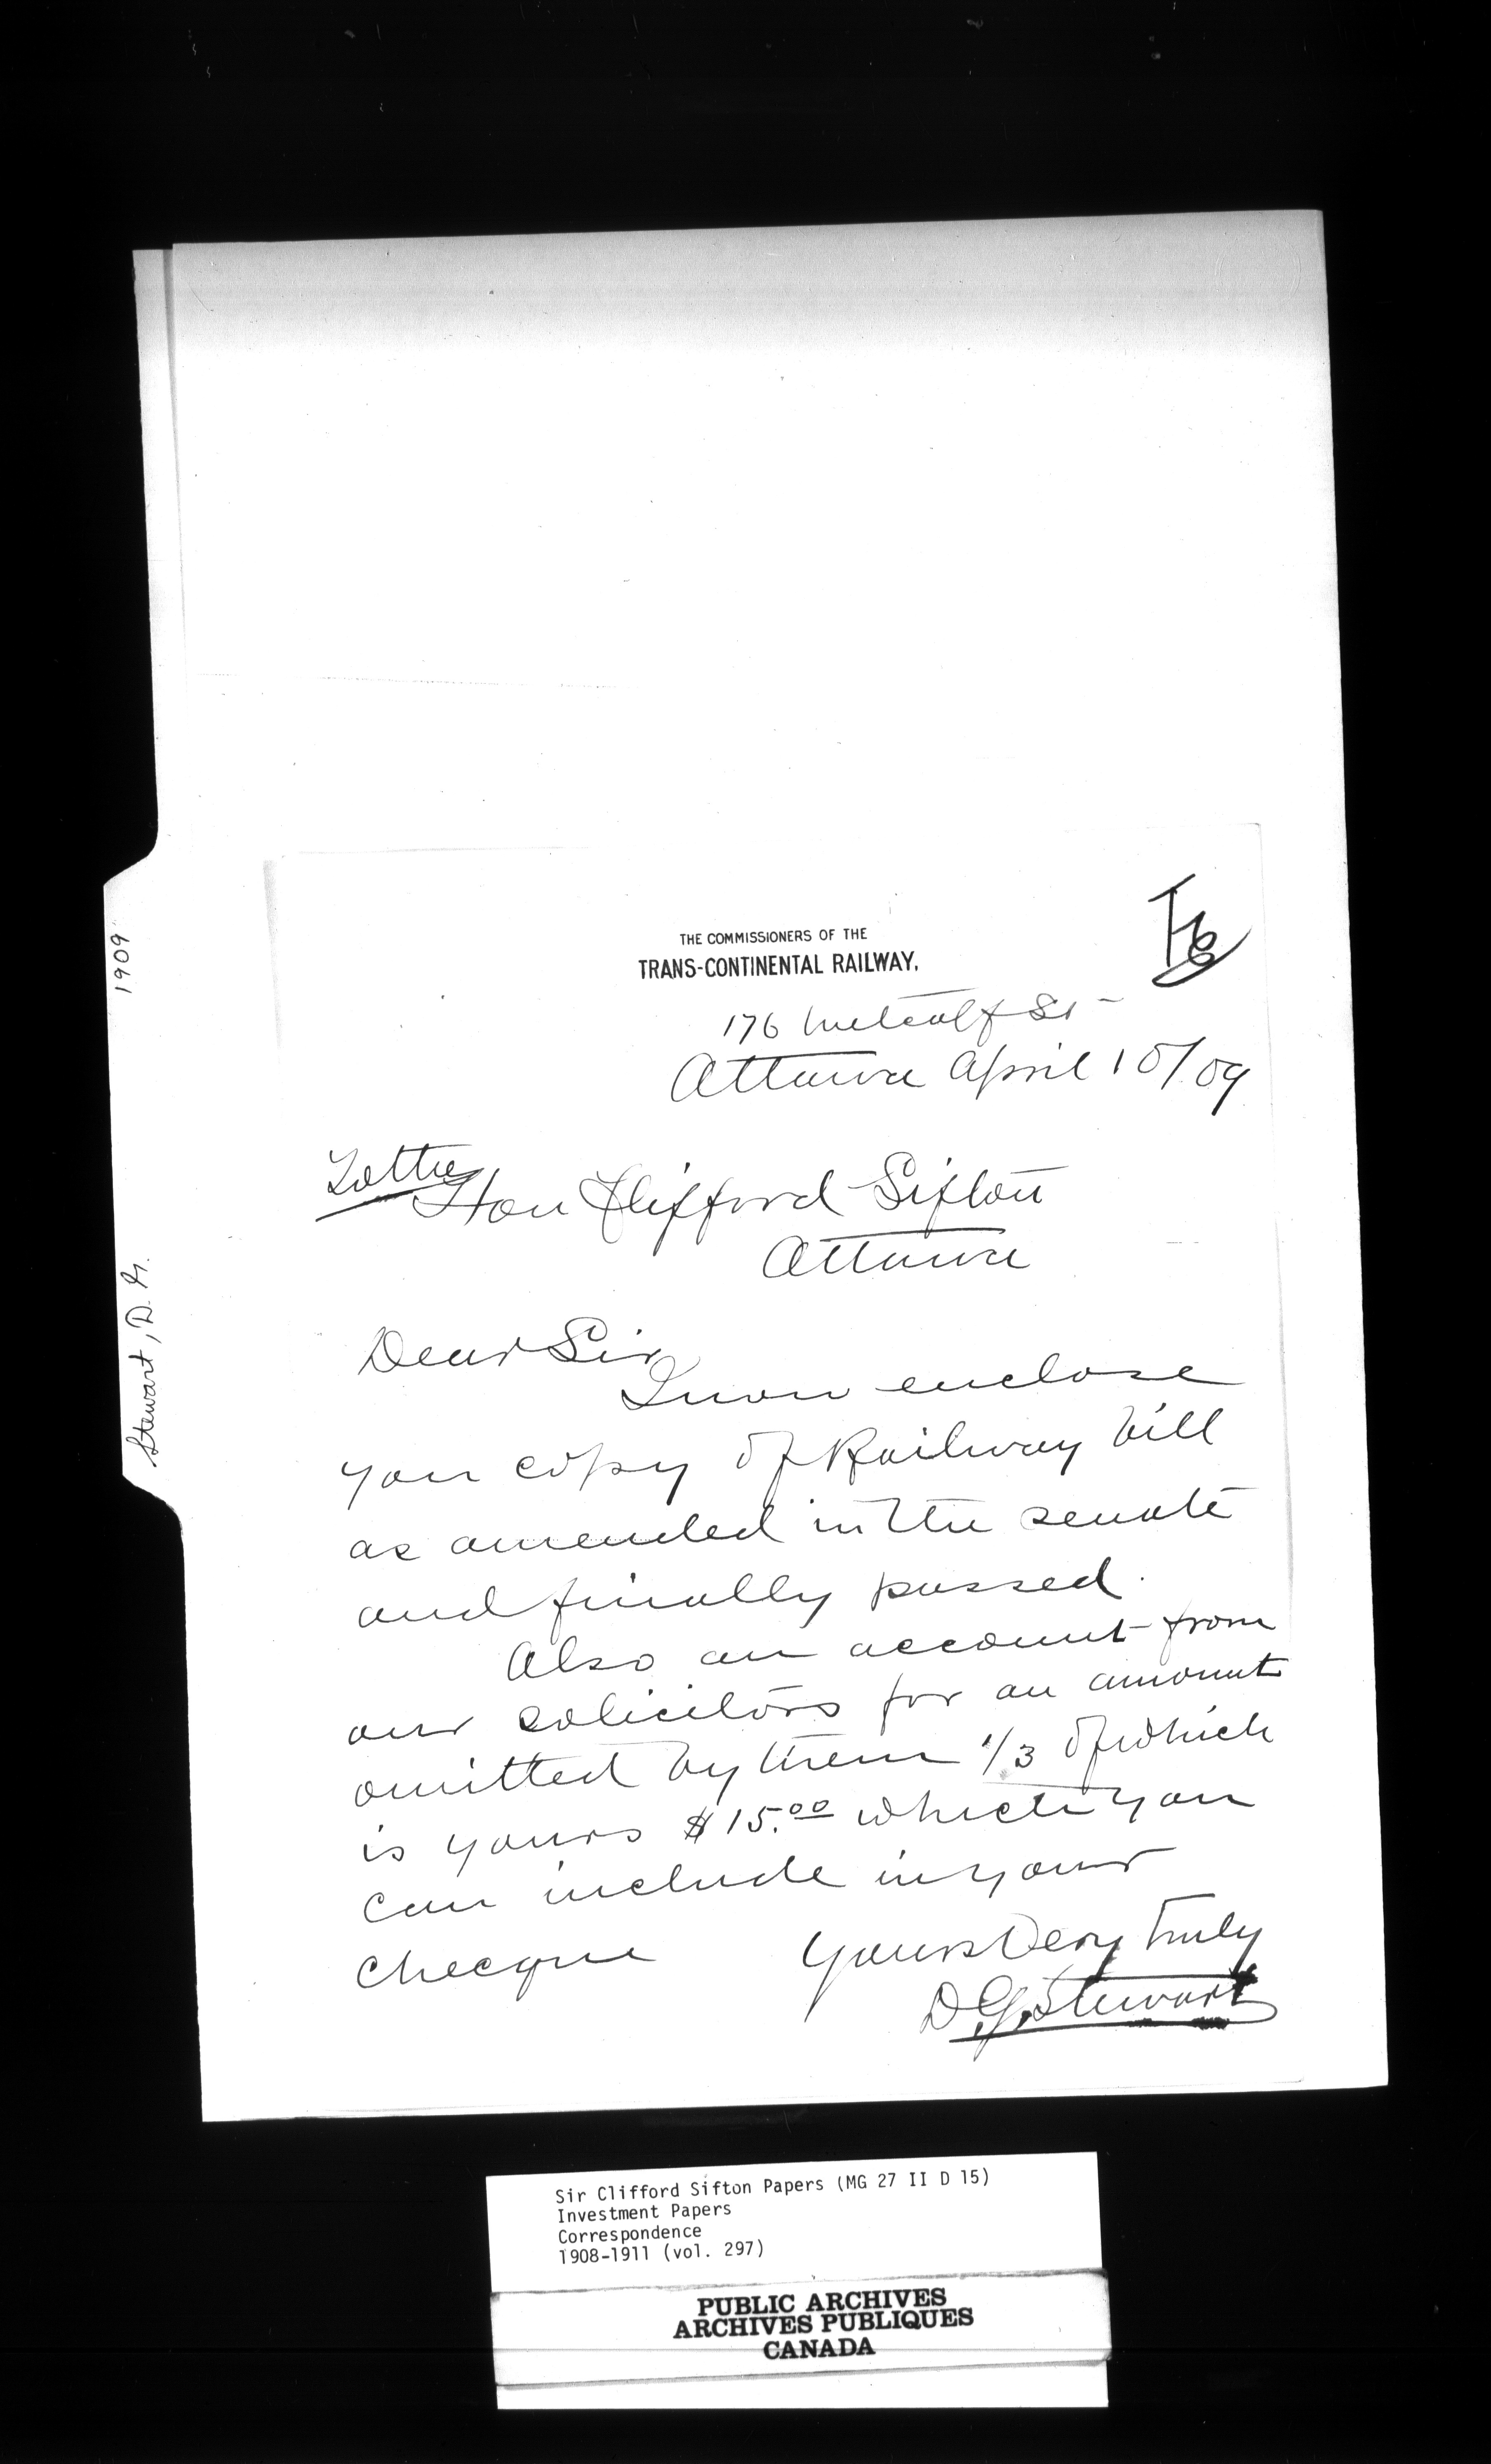 1909
Stewart, D. G.
THE COMMISSIONERS OF THE
TRANS-CONTINENTAL RAILWAY.
176 Metcalf St -
Ottawa April 10/09
To the
Hon Clifford Sifton
Ottawa
Dear Sir
I now enclose
you copy of Railway bill
as amended in the senate
and finally passed.
Also an account from
our solicitors for an amount
omitted by them 1/3 of which
is yours $15.00 which you
can include in your
cheque
Yours Very Truly
D. G. Stewart
Sir Clifford Sifton Papers (MG 27 II D 15)
Investment Papers
Correspondence
1908-1911 (vol. 297)
PUBLIC ARCHIVES
ARCHIVES PUBLIQUES
CANADA